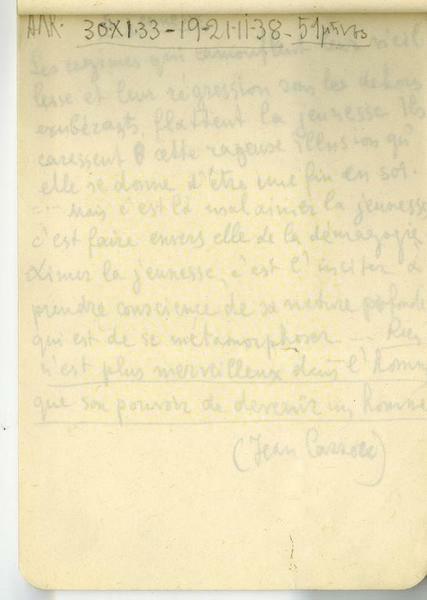 30 XI 33 - 19-21-II-38 - 51
Les régimes qui camouflent leur vieil
lesse et leur régression sous les dehors
exubérants, flattent la jeunesse. Ils
caressent cette rageuse illusion qu'
elle se donne d'être une fin en soi.
... Mais c'est là mal aimer la jeunesse
c'est faire envers elle de la démagogie
Aimer la jeunesse, c'est l'inciter à
prendre conscience de sa nature profonde
qui est de se métamorphoser ... Rien
n'est plus merveilleux dans l'homme
que son pouvoir de devenir un homme
(Jean Cassou)